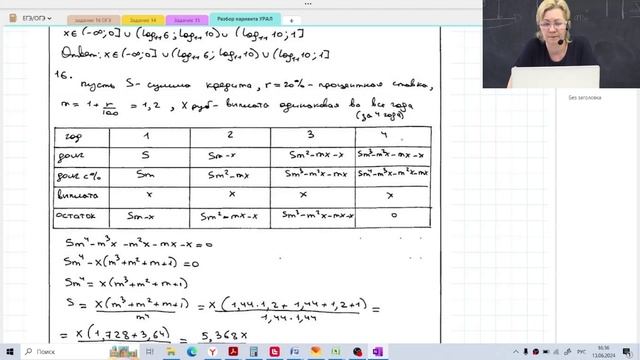 ЕГЭ/ОГЭ
задание 16 ОГЭ
Задание 14
Задание 15
Разбор варианта УРАЛ
x∈(-∞;0] ∪ (log₁₁6; log₁₁10) ∪ (log₁₁10; 1]
Ответ: x∈(-∞;0] ∪ (log₁₁6; log₁₁10) ∪ (log₁₁10; 1]
16.
Пусть S - сумма кредита, r = 20% - процентная ставка,
m = 1 + r/100 = 1,2, x руб - выплата одинаковая во все года
(за 4 года)
год 1 2 3 4
долг S Sm-x Sm²-mx-x Sm³-m²x-mx-x
долг с % Sm Sm²-mx Sm³-m²x-mx Sm⁴-m³x-m²x-mx
выплата x x x x
остаток Sm-x Sm²-mx-x Sm³-m²x-mx-x 0
Sm⁴-m³x-m²x-mx-x=0
Sm⁴-x(m³+m²+m+1)=0
Sm⁴=x(m³+m²+m+1)
S = x(m³+m²+m+1)/m⁴ = x(1,44·1,2+1,44+1,2+1)/1,44·1,44 =
= x(1,728+3,64) = 5,368x
Без заголовка
Поиск
РУС
16:36
13.06.2024